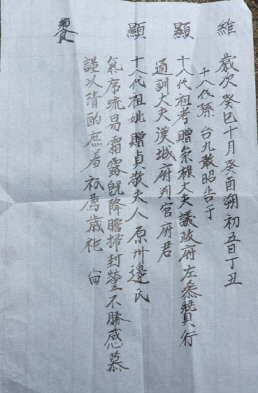 維
歲次癸巳十月癸酉朔初五日丁丑
十八代孫 台九敢昭告于
顯
十八代祖考贈資憲大夫議政府左參贊行
通訓大夫漢城府判官府君
顯
十八代祖妣贈貞敬夫人原州邊氏
氣序流易霜露旣降瞻掃封塋不勝感慕
謹以淸酌庶羞祗薦歲祀 尙
饗